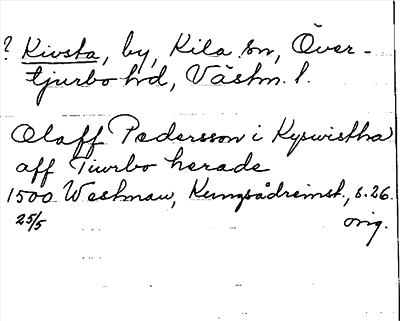 ? Kivsta, by, Kila sn, Över-
tjurbo hd, Västm. l.
Olaff Pedersson i Kyswistha
aff Tiwrbo herade
1500 Westmaw, Kungsådreinst., s. 26.
25/5 orig.